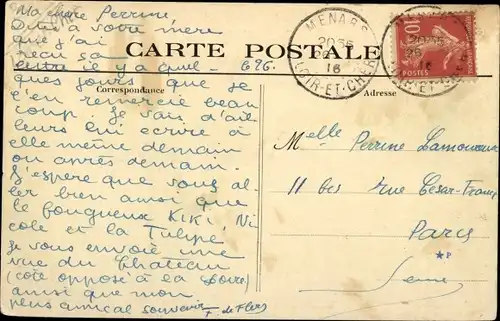 Ma chère Perrine
Dites à votre mère
que j'ai
reçu sa
lettre il y a quel-
ques jours que je
l'en remercie beau
coup. Je vais d'ail
leurs lui écrire à
elle même demain
ou après demain.
J'espère que vous al-
lez bien ainsi que
le fougueux KiKi Ni
cole et la Tulipe
Je vous envoie une
vue du Chateau
(côté opposé à la Loire)
ainsi que mon
plus amical souvenir F. de Flers
CARTE POSTALE
696.
Correspondance
Adresse
MENARS
20
16
LOIR-ET-CHER
10
Melle Perrine Lamoureux
11 bis rue César-Franck
Paris
Seine